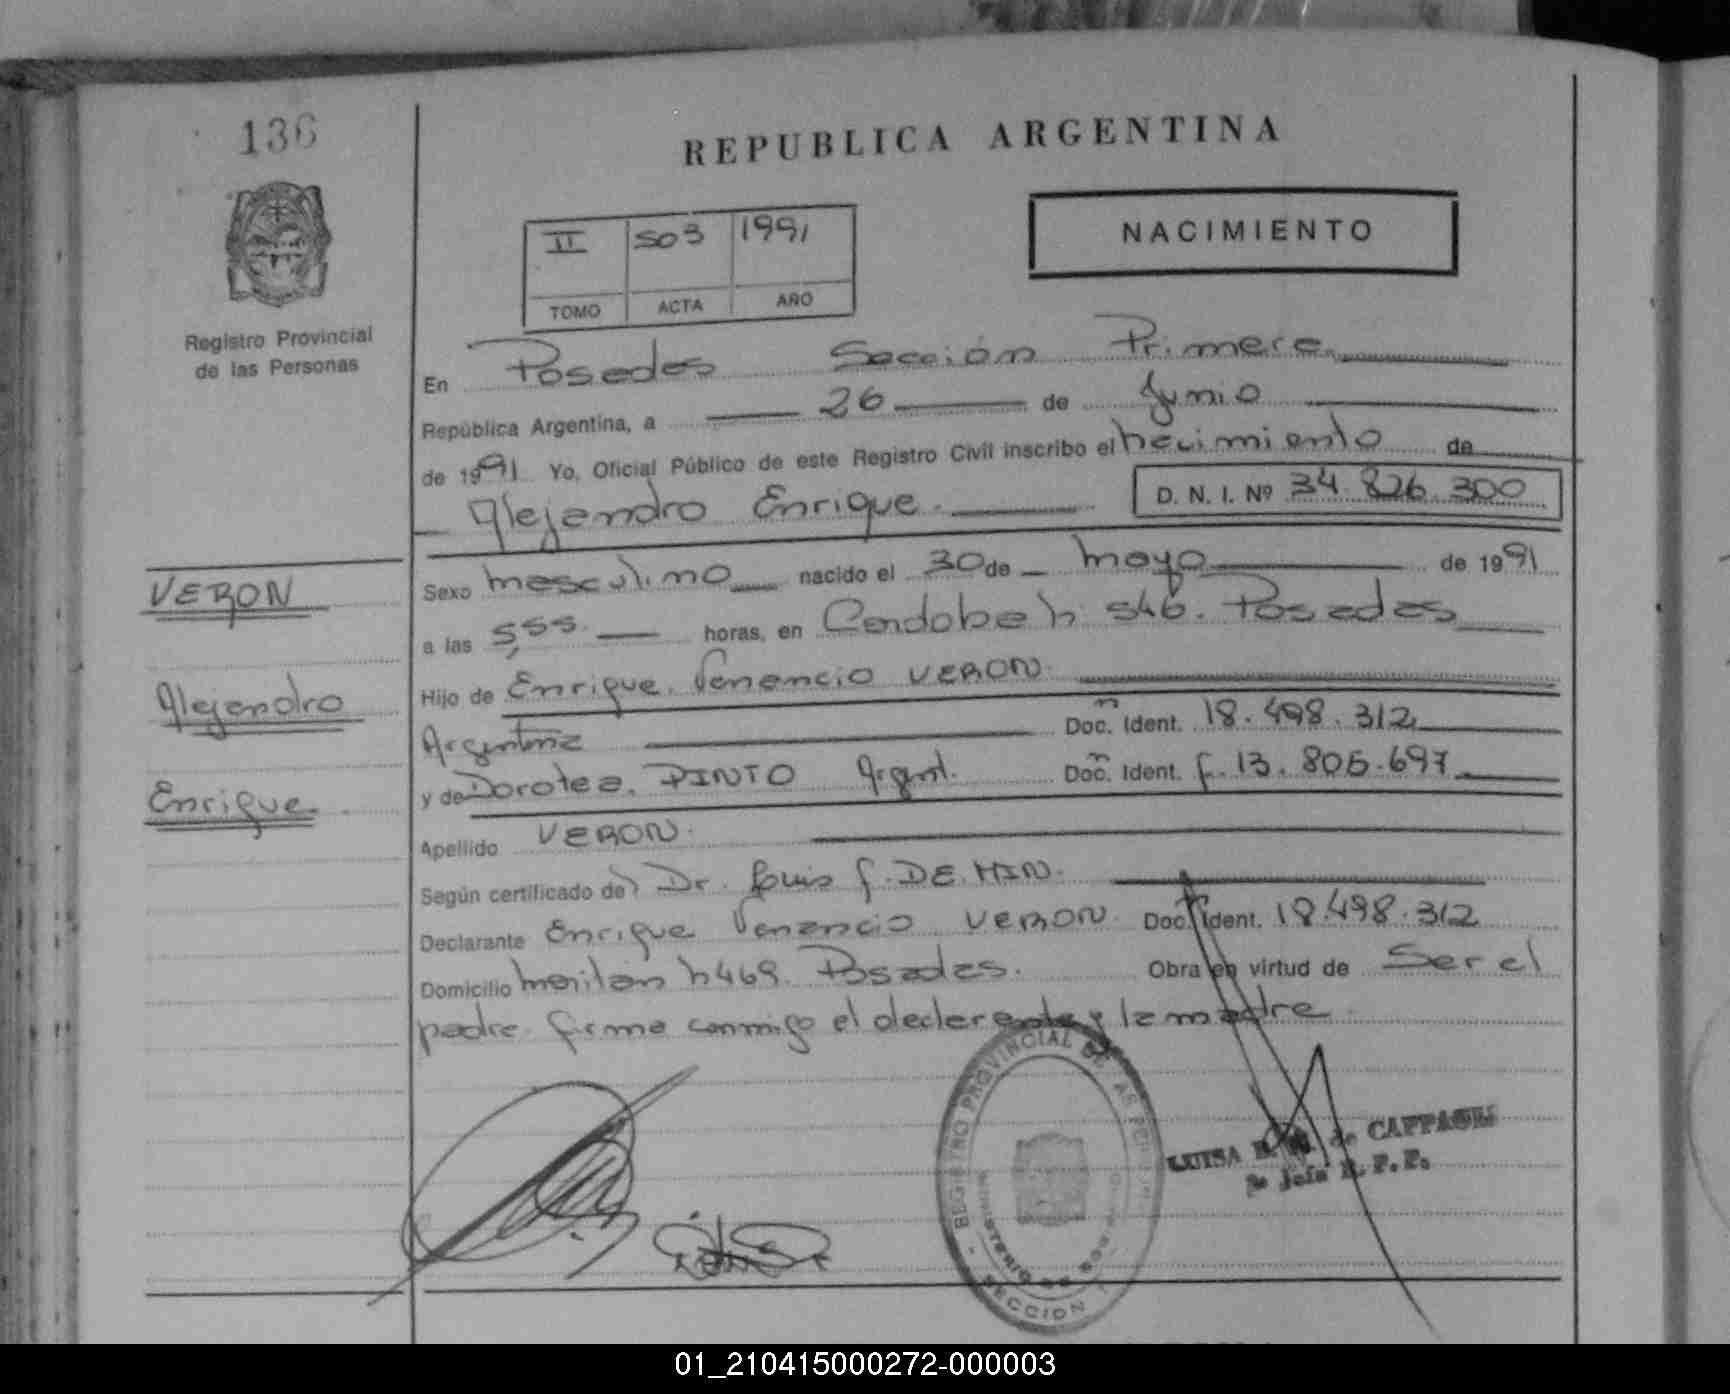 136
REPUBLICA ARGENTINA
Registro Provincial
de las Personas
II 503 1991
TOMO ACTA AÑO
NACIMIENTO
En Posadas Sección Primera
República Argentina, a 26 de Junio
de 1991 Yo, Oficial Público de este Registro Civil inscribo el nacimiento de
Alejandro Enrique. D. N. I. Nº 34.826.300
VERON
Alejandro
Enrique
Sexo masculino nacido el 30 de mayo de 1991
a las 5,55. horas, en Cordoba n 546. Posadas
Hijo de Enrique Venancio VERON.
Argentina Doc. Ident. 18.498.312
y de Dorotea PINTO Argent. Doc. Ident. f. 13.805.697
Apellido VERON.
Según certificado del Dr. Luis f. DE MIN.
Declarante Enrique Venancio VERON Doc. Ident. 18.498.312
Domicilio n 469. Posadas. Obra en virtud de Ser el
padre. firma conmigo el declarante y la madre.
REGISTRO PROVINCIAL DE LAS PERSONAS
SECCION 1
LUISA de
Jefa R. P. P.
01_210415000272-000003